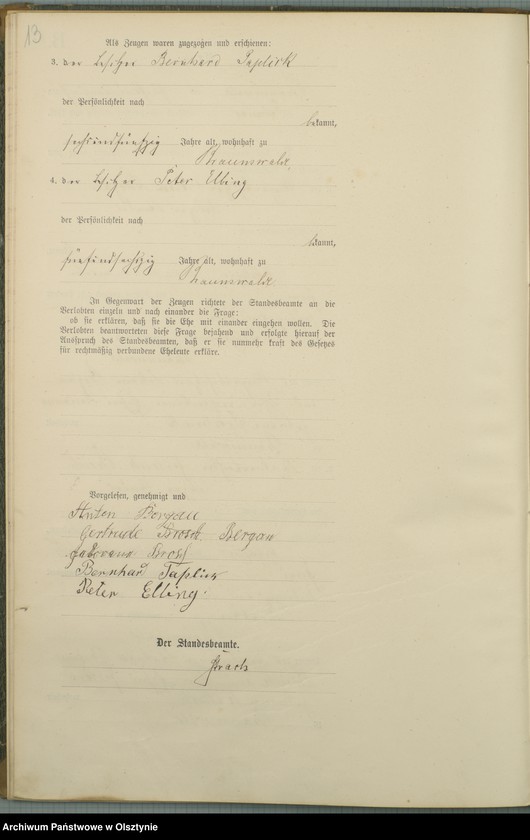 13
Als Zeugen waren zugezogen und erschienen:
3. der Besitzer Bernhard Taplick
der Persönlichkeit nach
bekannt,
sechsundfünfzig Jahre alt, wohnhaft zu
Braunswalde,
4. der Besitzer Peter Elbing
der Persönlichkeit nach
kannt,
fünfundsechzig Jahre alt, wohnhaft zu
Braunswalde.
In Gegenwart der Zeugen richtete der Standesbeamte an die
Verlobten einzeln und nach einander die Frage:
ob sie erklären, daß sie die Ehe mit einander eingehen wollen. Die
Verlobten beantworteten diese Frage bejahend und erfolgte hierauf der
Ausspruch des Standesbeamten, daß er sie nunmehr kraft des Gesetzes
für rechtmäßig verbundene Eheleute erkläre.
Vorgelesen, genehmigt und
Anton Bergau
Gertrude Bergau
Bernhard Taplick
Peter Elbing.
Der Standesbeamte.
Archiwum Państwowe w Olsztynie